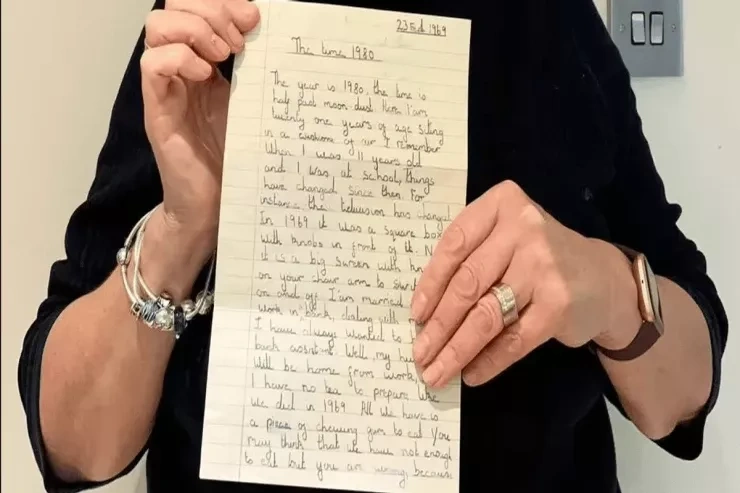 23 Feb 1969
The time 1980
The year is 1980, the time is
half past moon dust. Here I'am
twenty one years of age siting
in a cushione of air I remember
When I was 11 years old
and I was at school, things
have changed since then. For
instance, the television has changed
In 1969 it was a square box
with knobs in front of it. N
it is a big screen with
on your chair arm to
on and off I'am married
work in bank, dealing with
I have always wanted to
bank assistant. Well, my hu
will be home from work,
I have no tea to prepare like
we did in 1969. All we have is
a piece of chewing gum to eat you
may think that we have not enough
to eat but you are wrong, because